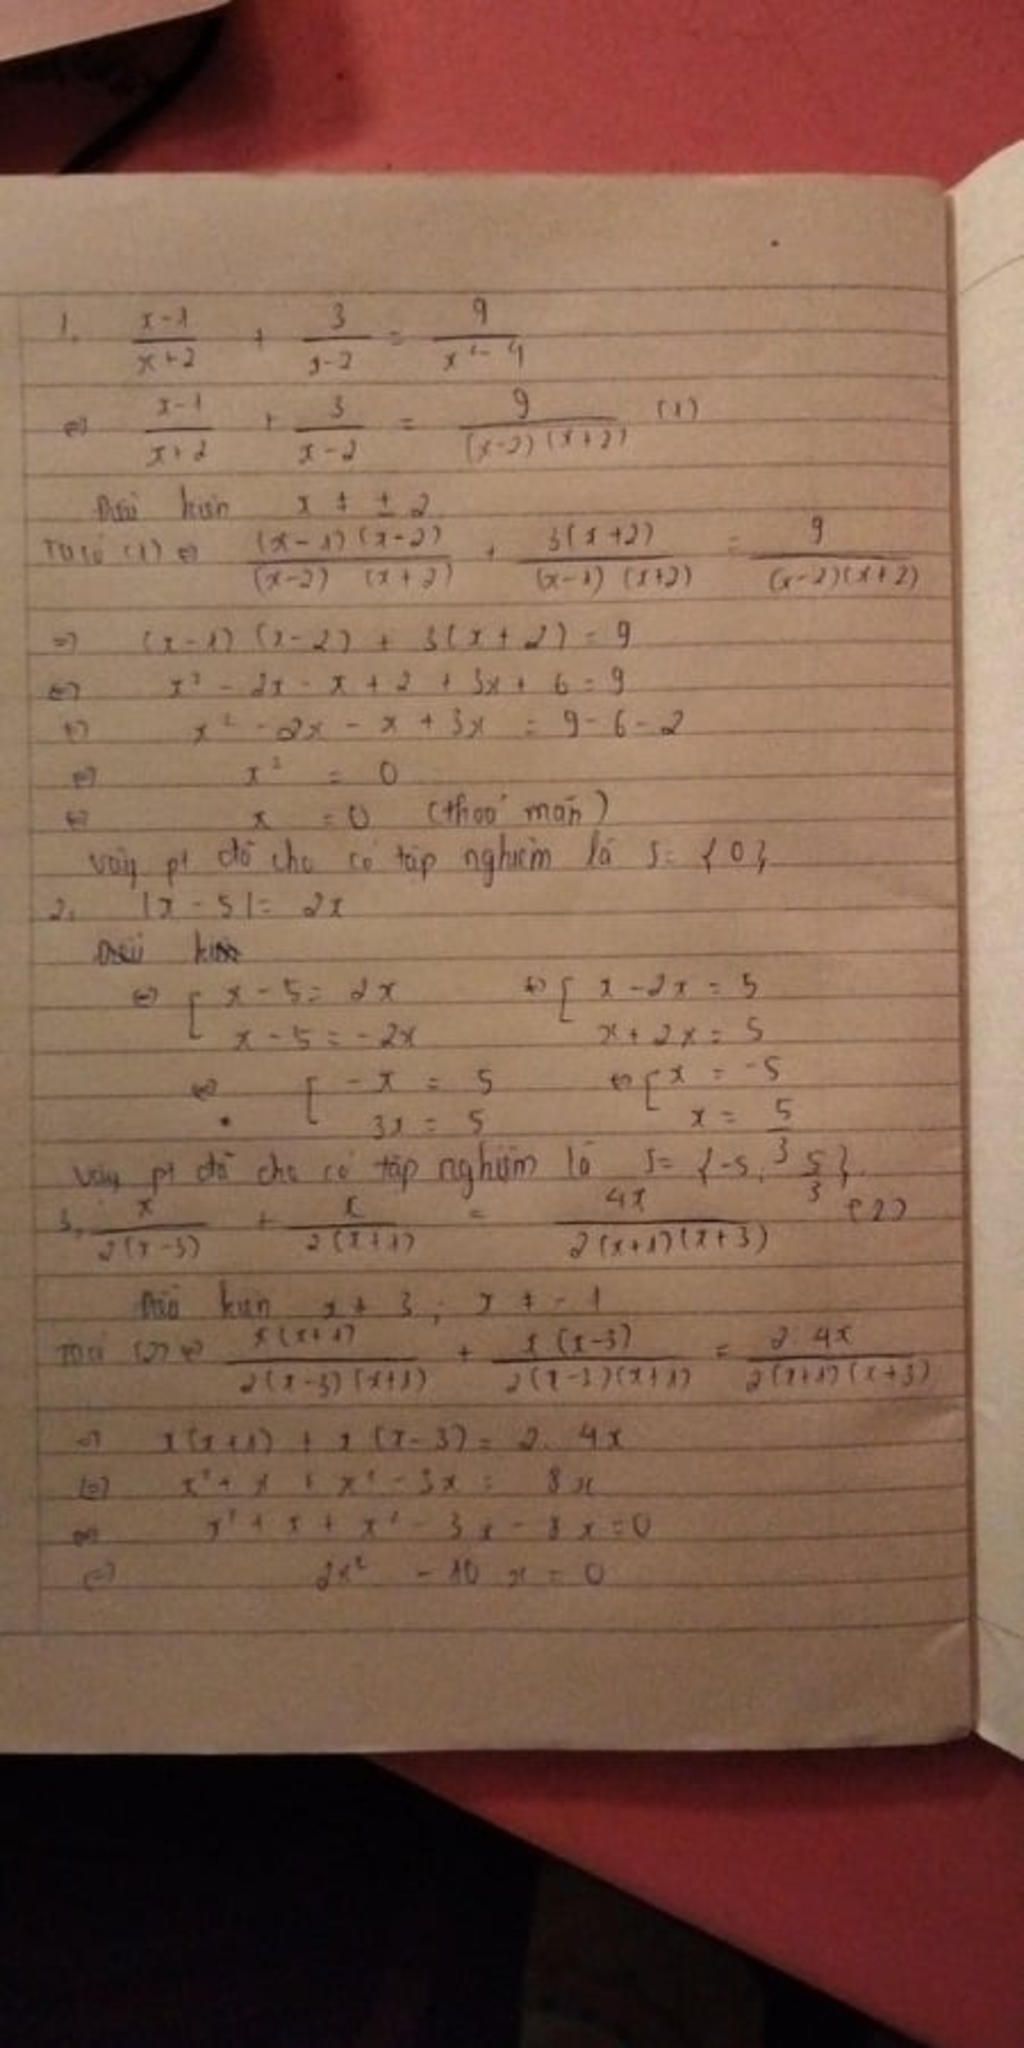 1. (x-1)/(x+2) + 3/(x-2) = 9/(x² - 4)
⇔ (x-1)/(x+2) + 3/(x-2) = 9/((x-2)(x+2)) (1)
Điều kiện x ≠ ± 2
Ta có (1) ⇔ ((x-1)(x-2))/((x-2)(x+2)) + (3(x+2))/((x-2)(x+2)) = 9/((x-2)(x+2))
⇒ (x-1)(x-2) + 3(x+2) = 9
⇔ x² - 2x - x + 2 + 3x + 6 = 9
⇔ x² - 2x - x + 3x = 9 - 6 - 2
⇔ x² = 0
⇔ x = 0 (thoả mãn)
Vậy pt đã cho có tập nghiệm là S = {0}
2. |x - 5| = 2x
⇔ [ x - 5 = 2x ⇔ [ x - 2x = 5
x - 5 = -2x x + 2x = 5
⇔ [ -x = 5 ⇔ [ x = -5
3x = 5 x = 5/3
Vậy pt đã cho có tập nghiệm là S = {-5, 5/3}.
3. x/(2(x-3)) + x/(2(x+1)) = 4x/(2(x+1)(x+3)) (2)
Điều kiện x ≠ 3 ; x ≠ -1
Ta có (2) ⇔ (x(x+1))/(2(x-3)(x+1)) + (x(x-3))/(2(x-3)(x+1)) = (2. 4x)/(2(x+1)(x+3))
⇒ x(x+1) + x(x-3) = 2. 4x
⇔ x² + x + x² - 3x = 8x
⇔ x² + x + x² - 3x - 8x = 0
⇔ 2x² - 10x = 0